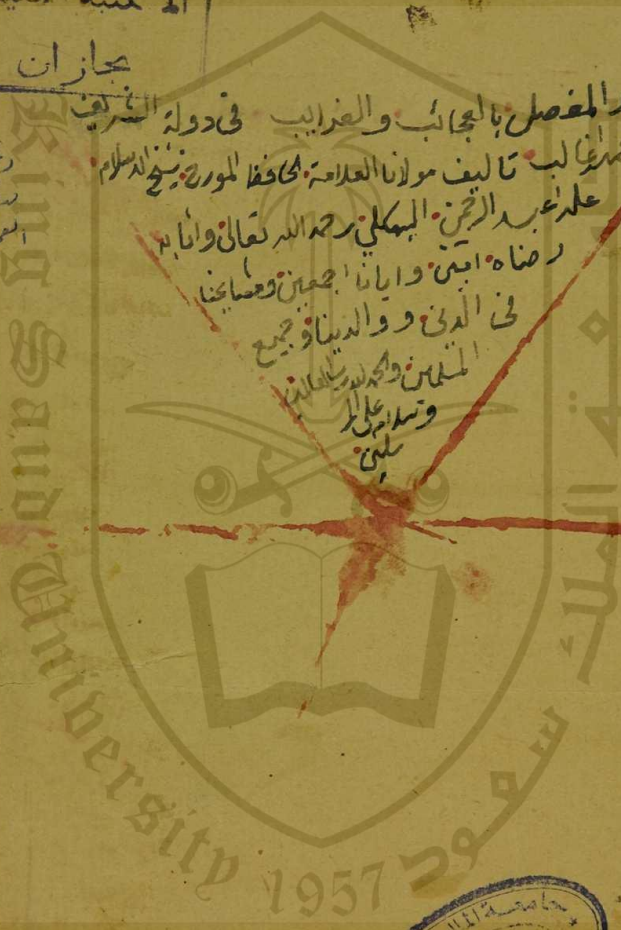 بجازان
المفصل بالعجائب والغرايب في دولة الشريف
غالب تاليف مولانا العلامة الحافظ المورخ شيخ الاسلام
عبد الرحمن البهكلي رحمه الله تعالى واثابه
رضاه امين وايانا اجمعين ومشايخنا
في الدين ووالدينا وجميع
المسلمين والحمد لله رب العالمين
وسلام على المر
سلين
King Saud University 1957
جامعة الملك سعود
جامعة الملك